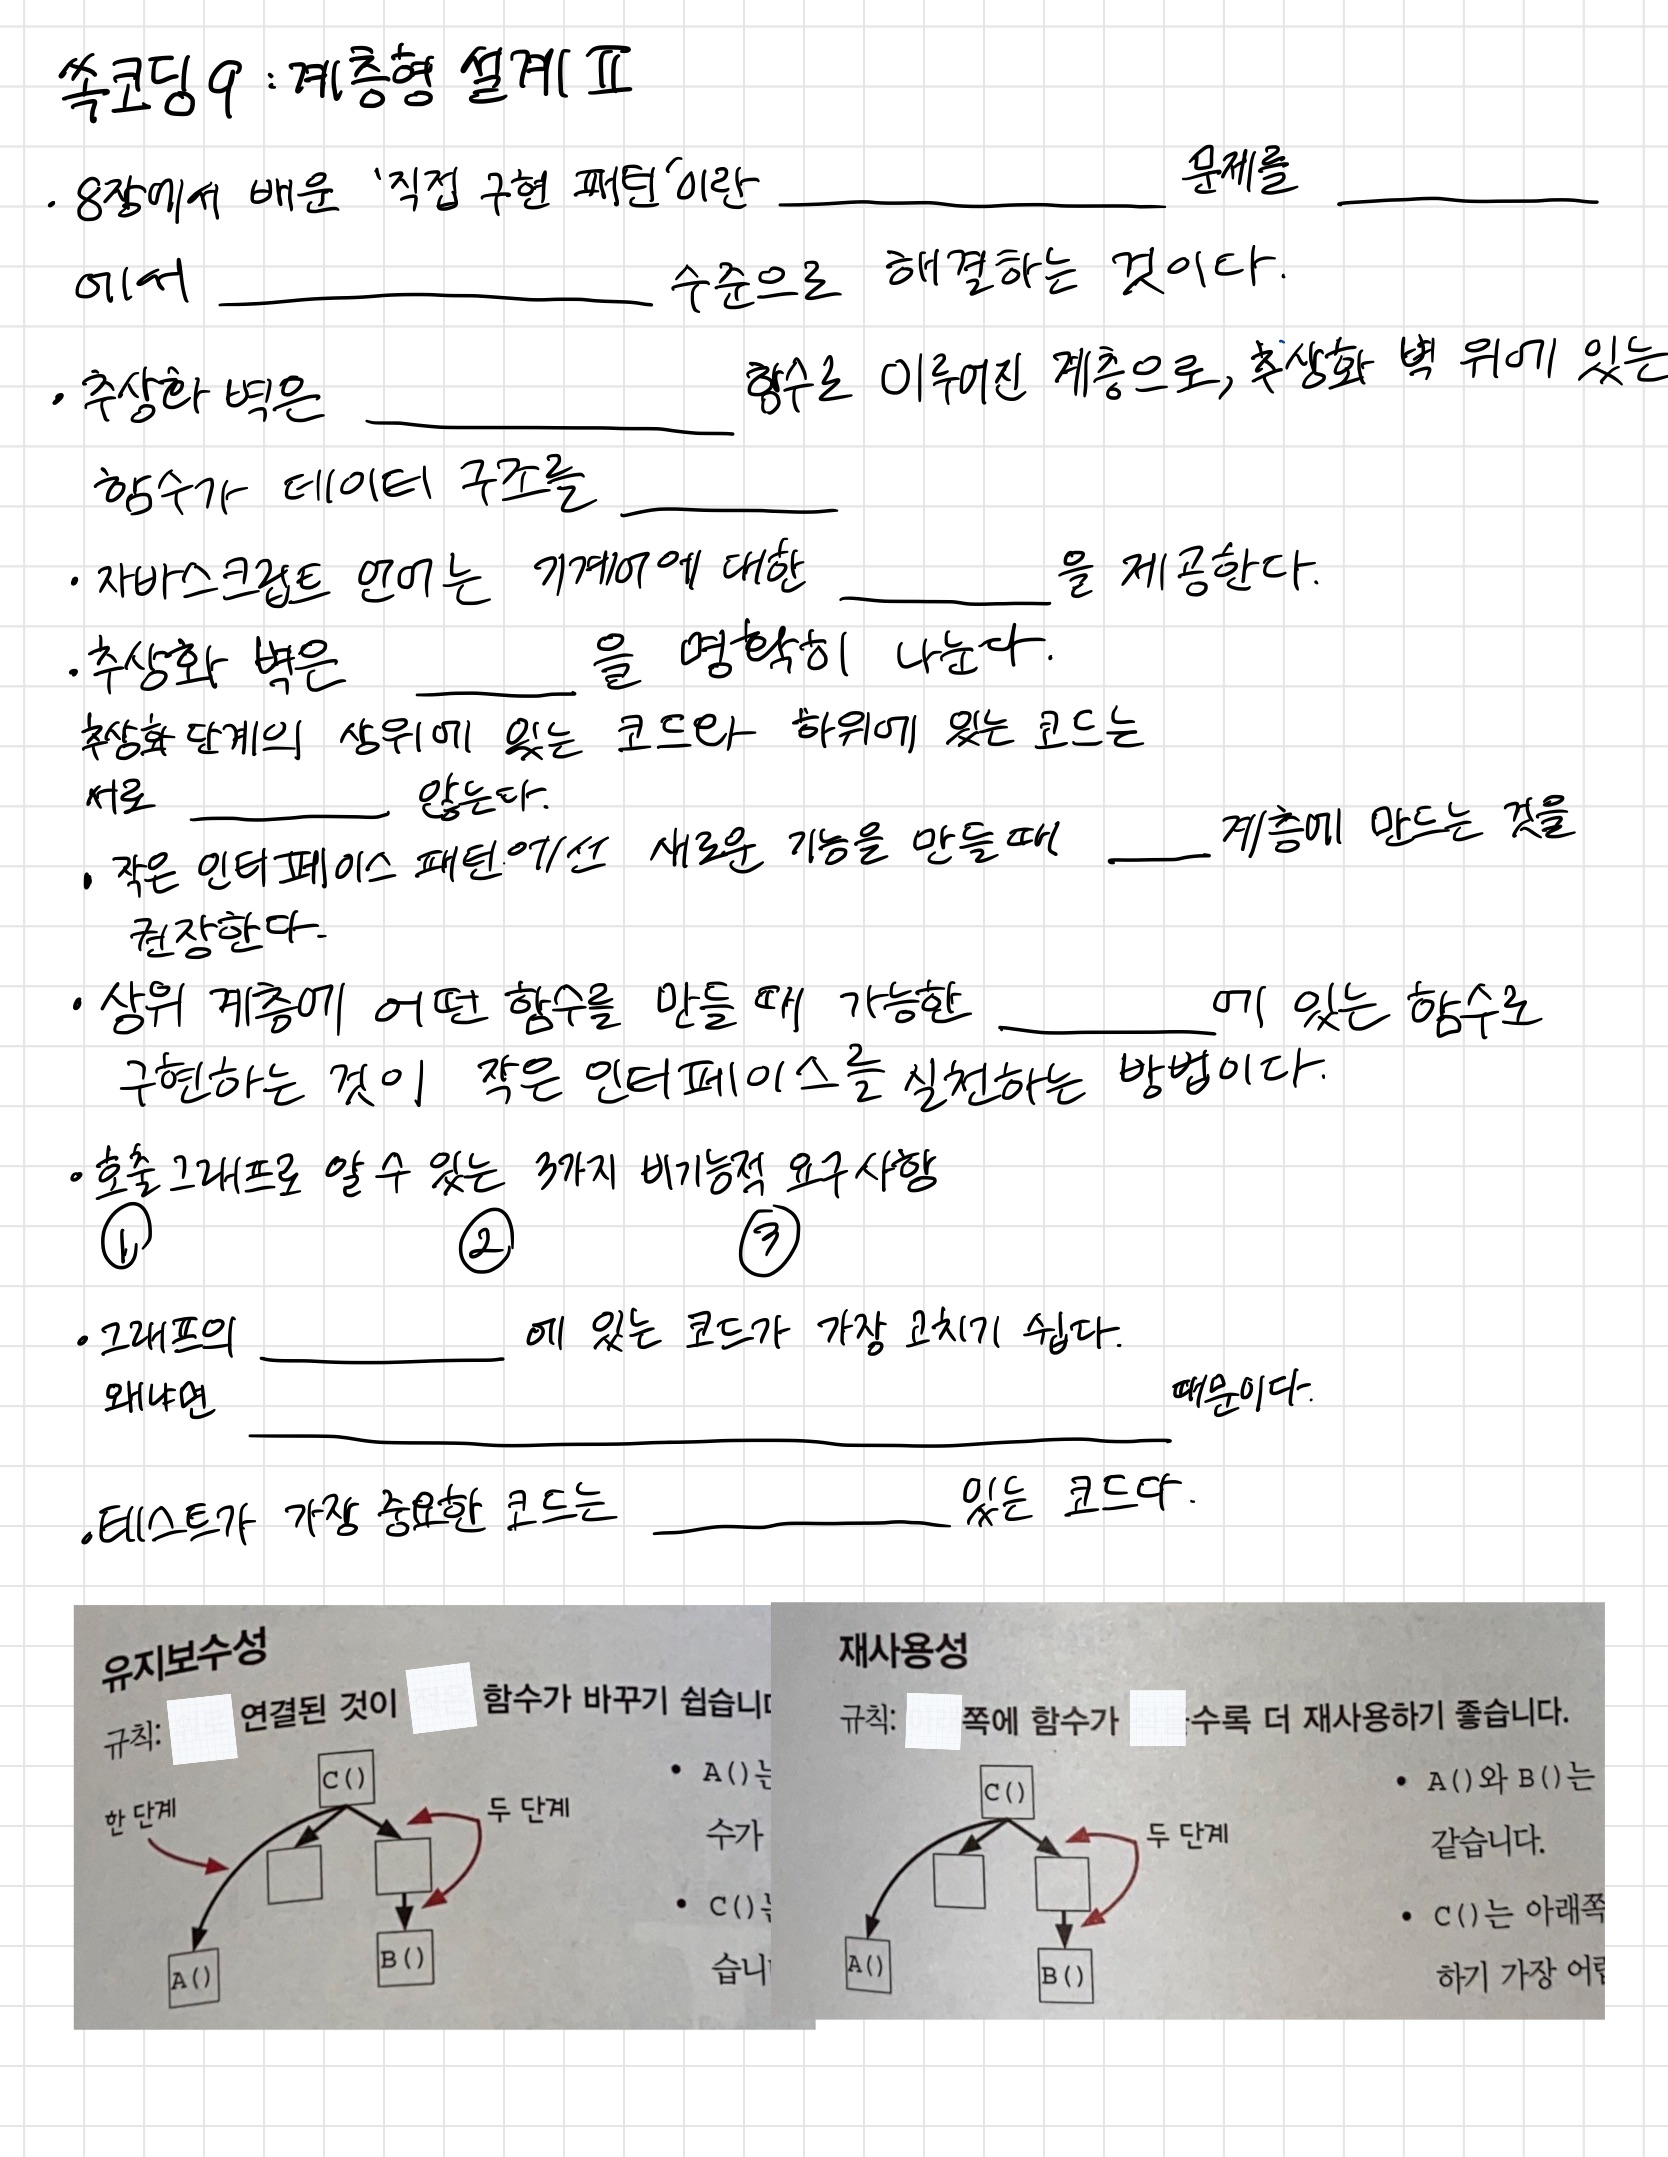 쏙코딩 9 : 계층형 설계 II
· 8장에서 배운 '직접 구현 패턴'이란 ____ 문제를 ____
에서 ____ 수준으로 해결하는 것이다.
· 추상화 벽은 ____ 함수로 이루어진 계층으로, 추상화 벽 위에 있는
함수가 데이터 구조를 ____
· 자바스크립트 언어는 기계어에 대한 ____ 을 제공한다.
· 추상화 벽은 ____ 을 명확히 나눈다.
추상화 단계의 상위에 있는 코드와 하위에 있는 코드는
서로 ____ 않는다.
· 작은 인터페이스 패턴에선 새로운 기능을 만들 때 ____ 계층에 만드는 것을
권장한다.
· 상위 계층에 어떤 함수를 만들 때 가능한 ____ 에 있는 함수로
구현하는 것이 작은 인터페이스를 실천하는 방법이다.
· 호출 그래프로 알 수 있는 3가지 비기능적 요구사항
① ② ③
· 그래프의 ____ 에 있는 코드가 가장 고치기 쉽다.
왜냐면 ____ 때문이다.
· 테스트가 가장 중요한 코드는 ____ 있는 코드다.
유지보수성
규칙: 연결된 것이 함수가 바꾸기 쉽습니다
C()
한 단계
두 단계
A()
B()
• A()는
수가
• C()는
습니
재사용성
규칙: 쪽에 함수가 수록 더 재사용하기 좋습니다.
C()
두 단계
A()
B()
• A()와 B()는
같습니다.
• C()는 아래쪽
하기 가장 어렵